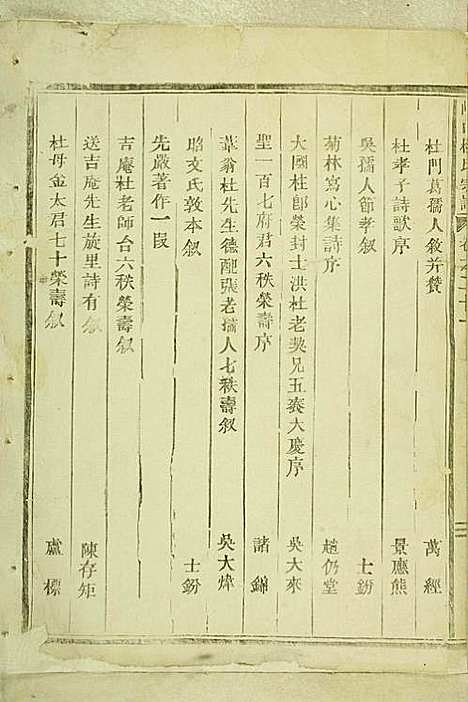 杜門萬孺人敘并贊 萬經
杜孝子詩歌序 景應熊
吳孺人節孝叙 士鈖
菊林寫心集詩序 趙仍堂
大國杜郎榮封士洪杜老奭兄五袠大慶序 吳大來
聖一百七府君六秩榮壽序 諸錦
翁杜先生德配張老孺人七袟壽叙 吳大煒
昭文氏敦本叙 士鈖
先嚴著作一叚
吉庵杜老師台六秩榮壽叙
送吉庵先生旋里詩有叙 陳存矩
杜母金太君七十榮壽叙 盧標